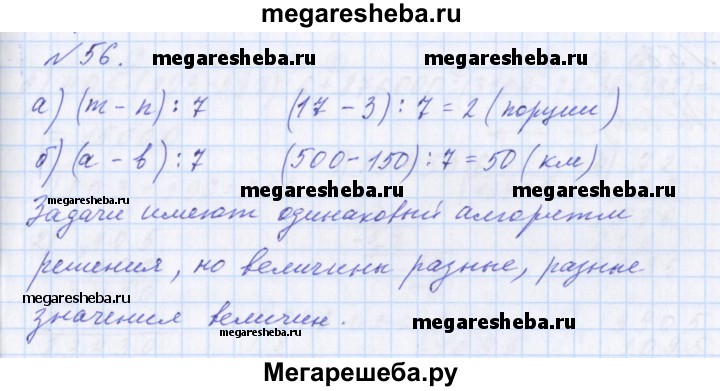 megaresheba.ru
№ 56.
megaresheba.ru megaresheba.ru
а) (m - n) : 7 (17 - 3) : 7 = 2 (порции)
б) (a - b) : 7 (500 - 150) : 7 = 50 (км)
megaresheba.ru megaresheba.ru megaresheba.ru
Задачи имеют одинаковый алгоритм
решения, но величины разные, разные
megaresheba.ru
значения величин.
megaresheba.ru megaresheba.ru
Мегарешеба.ру